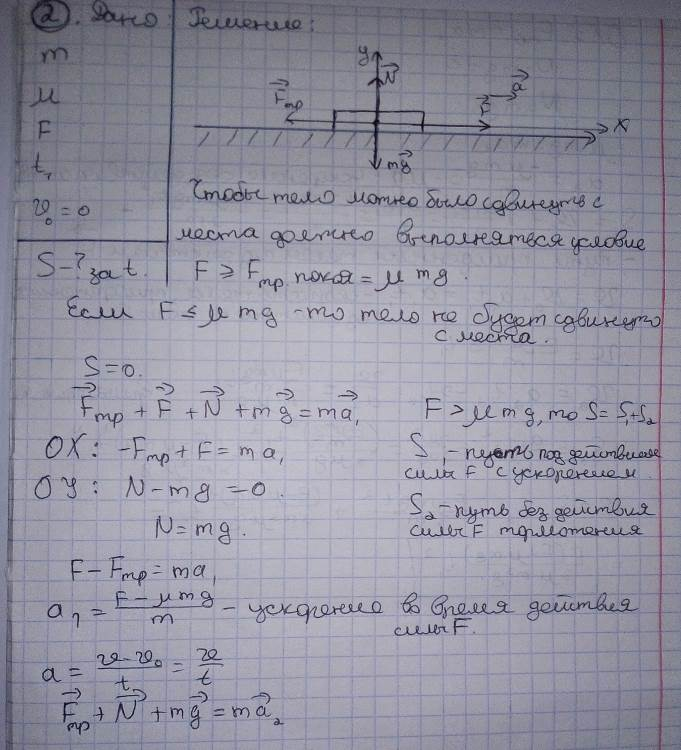 ②. Дано: Решение:
m
μ
F
t₁
υ₀ = 0
S - ? за t.
y N⃗ F⃗тр F⃗ a⃗ x mg⃗
Чтобы тело можно было сдвинуть с
места должно выполняться условие
F ≥ Fтр покоя = μ mg.
Если F ≤ μ mg - то тело не будет сдвинуто
с места.
S = 0.
F⃗тр + F⃗ + N⃗ + mg⃗ = ma⃗₁
F > μ mg, то S = S₁ + S₂
OX: -Fтр + F = ma₁
S₁ - путь под действием
силы F с ускорением.
OY: N - mg = 0.
S₂ - путь без действия
силы F торможения
N = mg.
F - Fтр = ma₁
a₁ = (F - μ mg)/m - ускорение во время действия
силы F.
a = (υ - υ₀)/t = υ/t
F⃗тр + N⃗ + mg⃗ = ma⃗₂